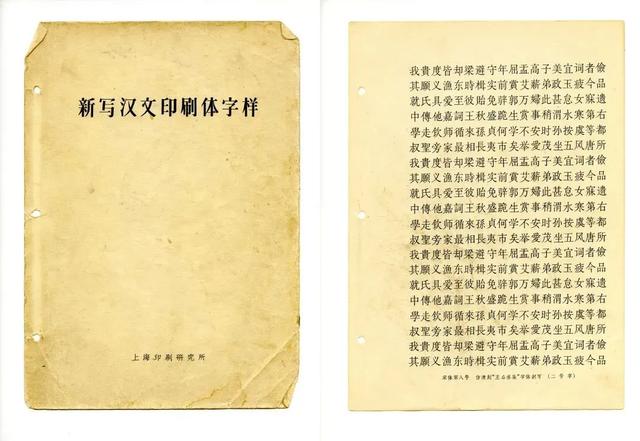 新写汉文印刷体字样
上海印刷研究所
我貴度皆却梁避守年屈孟高子美宜词者儉
其願义渔东時楫实前賞艾薪弟政玉疲今品
就氏具爱至彼貽免辤郭万婦此甚怠女寐遺
中傳他嘉詞王秋盛跪生赏事稍渭水寒第右
學走钦师循來孫貞何学不安时孙按虞等都
叔聖旁家最相長夷市矣举愛茂坐五风唐所
我貴度皆却梁避守年屈孟高子美宜词者儉
其願义渔东時楫实前賞艾薪弟政玉疲今品
就氏具爱至彼貽免辤郭万婦此甚怠女寐遺
中傳他嘉詞王秋盛跪生赏事稍渭水寒第右
學走钦师循來孫貞何学不安时孙按虞等都
叔聖旁家最相長夷市矣举愛茂坐五风唐所
我貴度皆却梁避守年屈孟高子美宜词者儉
其願义渔东時楫实前賞艾薪弟政玉疲今品
就氏具爱至彼貽免辤郭万婦此甚怠女寐遺
中傳他嘉詞王秋盛跪生赏事稍渭水寒第右
學走钦师循來孫貞何学不安时孙按虞等都
叔聖旁家最相長夷市矣举愛茂坐五风唐所
我貴度皆却梁避守年屈孟高子美宜词者儉
其願义渔东時楫实前賞艾薪弟政玉疲今品
宋体第八号 字体 (二号字)